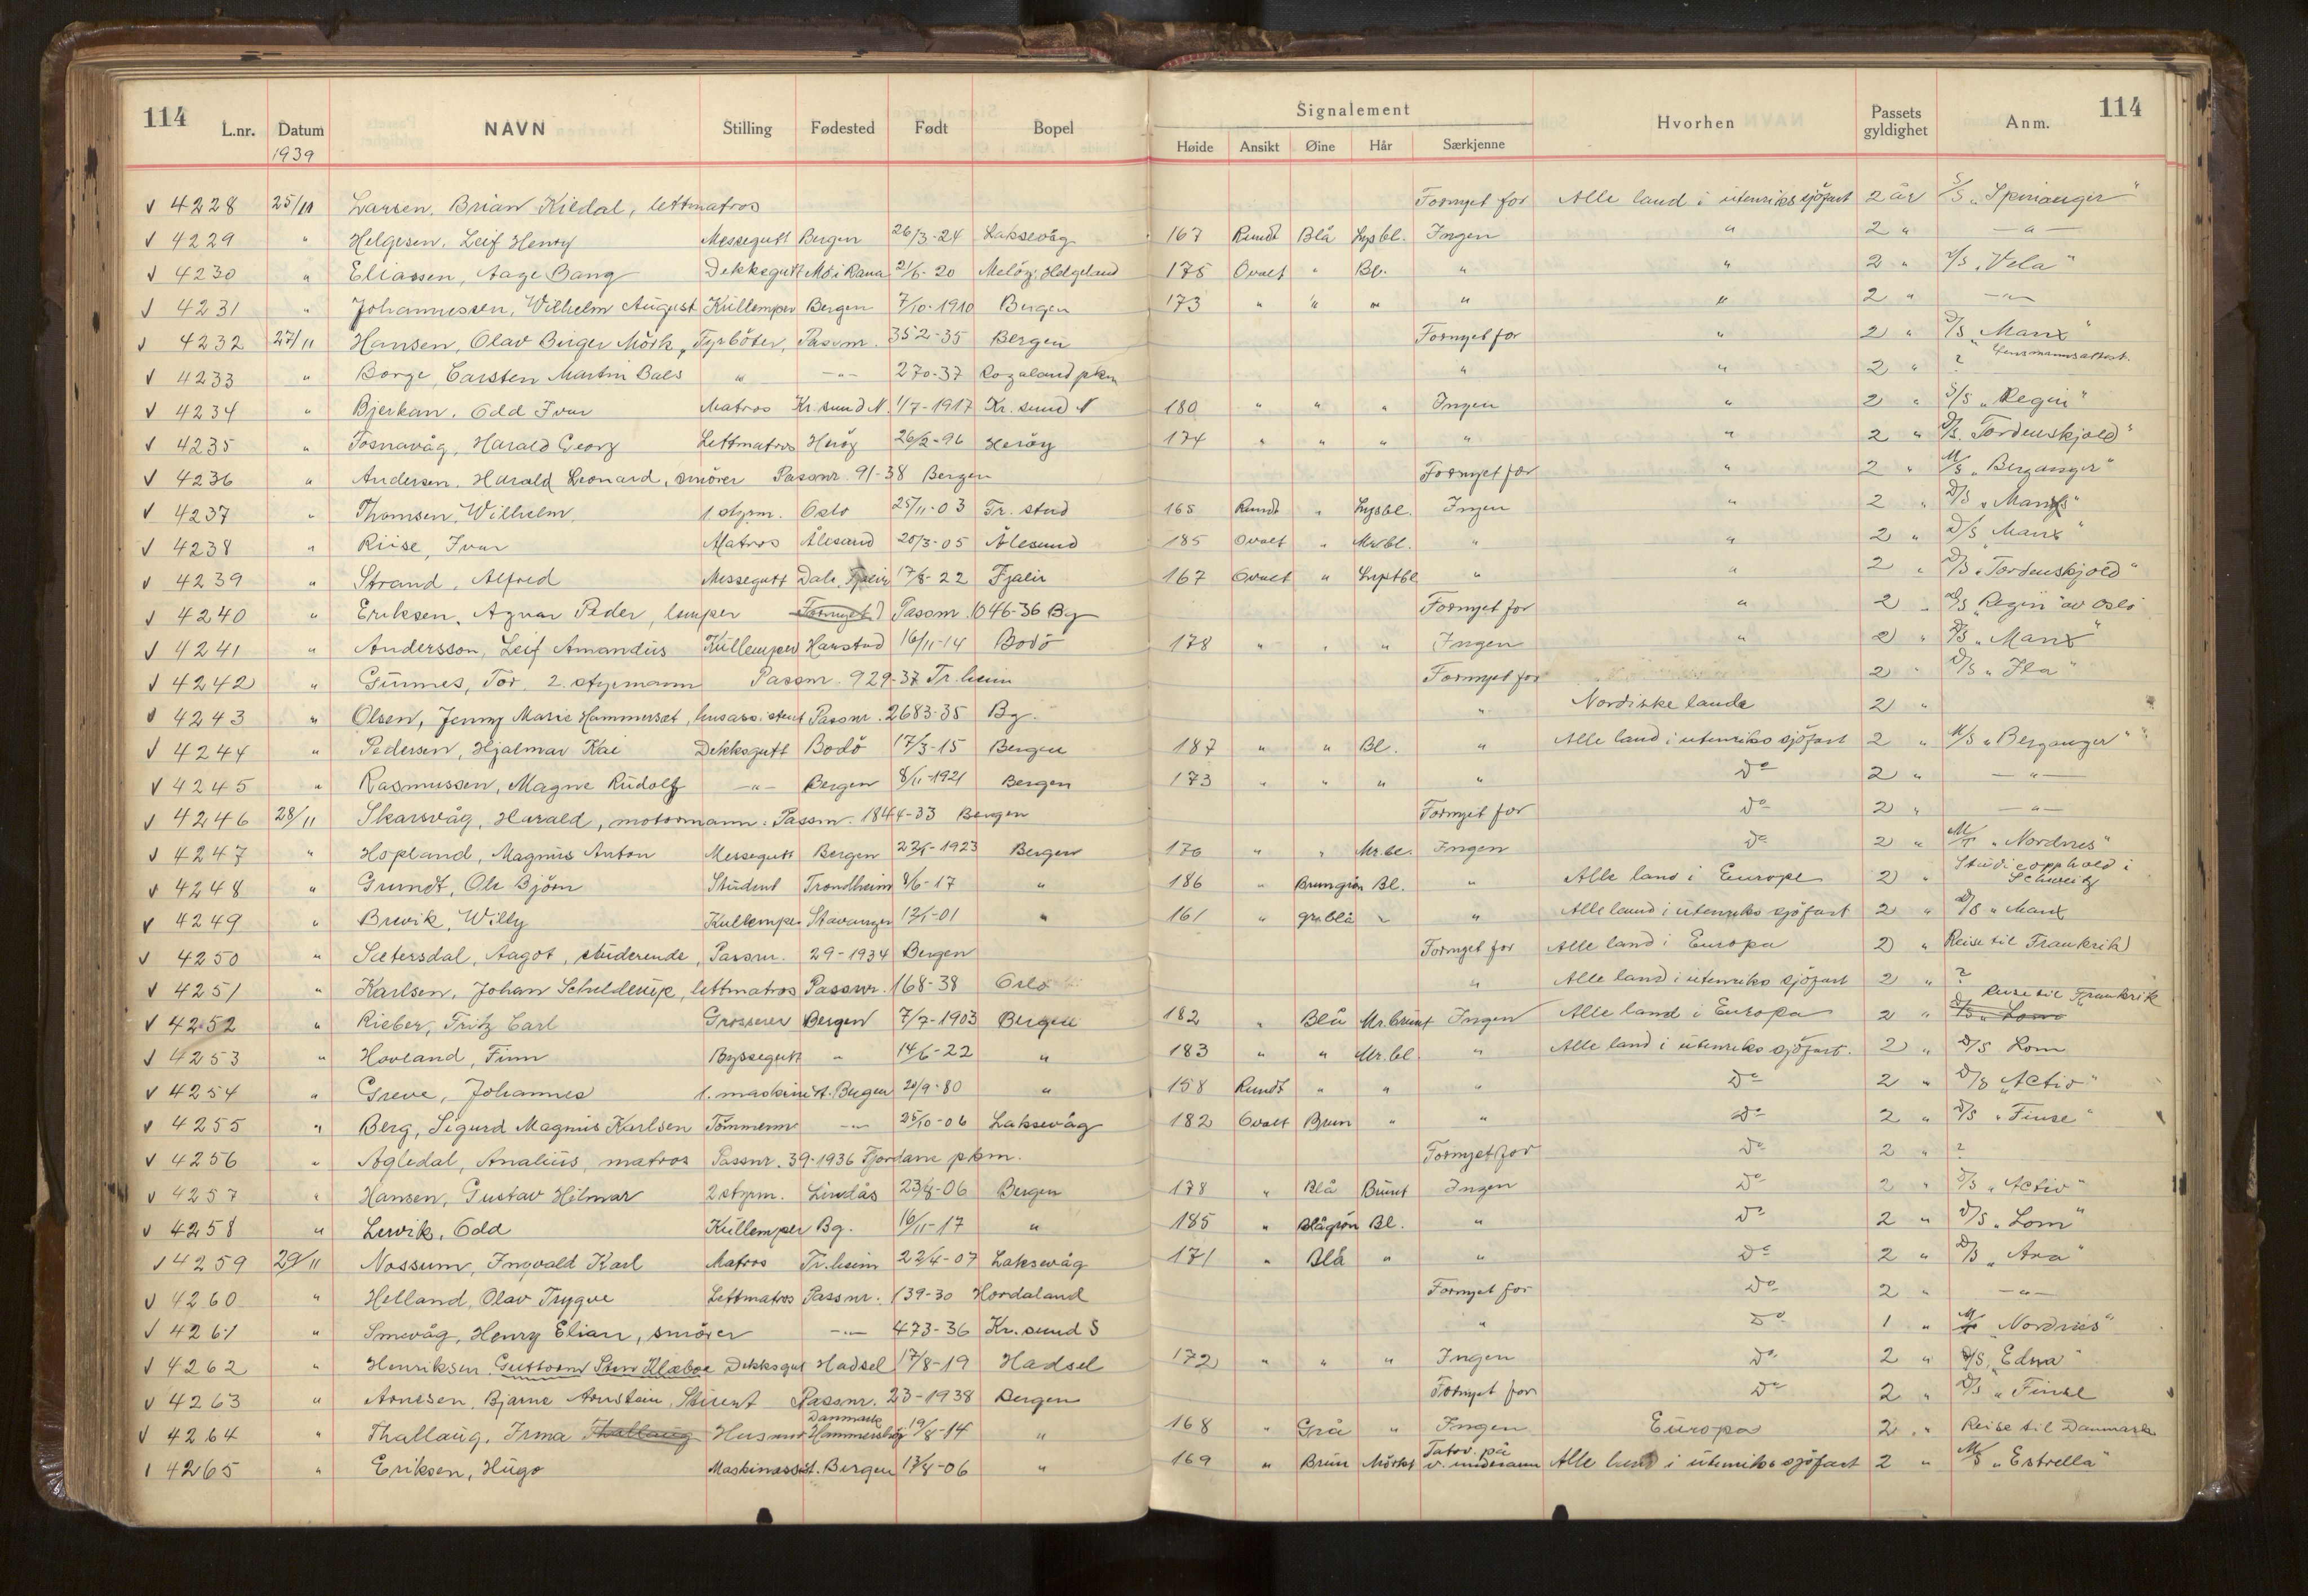 114 114
Signalement
L.nr. Datum NAVN Stilling Fødested Født Bopel Høide Ansikt Øine Hår Særkjenne Hvorhen Passets gyldighet Anm.
1939
v 4228 25/11 Larsen, Brian Kildal, lettmatros Fornyet for Alle land i utenriks sjöfart 2 år S/S „Spinanger“
v 4229 " Helgesen, Leif Henry Messegutt Bergen 26/3-24 Laksevåg 167 Rundt Blå Lysbl. Ingen " 2 " — " —
v 4230 " Eliassen, Aage Bang Dekksgutt Mo i Rana 2/6-20 Melöy. Helgeland 175 Ovalt " Bl. " " 2 " D/S „Vela“
v 4231 " Johannessen, Wilhelm August Kullemper Bergen 7/10-1910 Bergen 173 " " " " " 2 " — " —
v 4232 27/11 Hansen, Olav Birger Mörk, Fyrböter, Passnr. 352-35 Bergen Fornyet for " 2 " D/S „Manx“
v 4233 " Borge, Carsten Martin Bals " — " — 270-37 Rogaland pkm " " 2 " ? Lensmannsattest.
v 4234 " Bjerkan, Odd Ivar Matros Kr.sund N. 1/7-1917 Kr.sund N 180 " " " Ingen " 2 " D/S „Regin“
v 4235 " Tosnavåg, Harald Georg Lettmatros Heröy 26/2-96 Heröy 174 " " " " " 2 " D/S. Tordenskjold“
v 4236 " Andersen, Harald Leonard, smörer Passnr. 91-38 Bergen Fornyet for " 2 " M/S „Berganger“
v 4237 " Thomsen, Wilhelm 1. styrm. Oslo 25/11-03 Tr. stad 165 Rundt " Lysbl. Ingen " 2 " D/S „Manx“
v 4238 " Riise, Ivar Matros Ålesund 20/3-05 Ålesund 185 Ovalt " Mr.bl. " " 2 " D/S Manx“
v 4239 " Strand, Alfred Messegutt Dale, Fjalir 17/8-22 Fjalir 167 Ovalt " " " 2 " D/S „Tordenskjold“
v 4240 " Eriksen, Agnar Peder, lemper Fornyet Passnr. 1046-36 Bg Fornyet for " 2 " D/S „Regin“ av Oslo
v 4241 " Andersson, Leif Amandus Kullemper Harstad 16/11-14 Bodö 178 " " " Ingen " 2 " D/S „Manx“
v 4242 " Gunnes, Tor, 2. styrmann Passnr. 929-37 Tr.heim Fornyet for 2 " D/S „Ila“
v 4243 " Olsen, Jenny Marie Hammerset, husassistent Passnr. 2683-35 Bg. " Nordiske lande 2 "
v 4244 " Pedersen, Hjalmar Kai Dekksgutt Bodö 17/3-15 Bergen 187 " " Bl. " Alle land i utenriks sjöfart 2 " M/S „Berganger“
v 4245 " Rasmussen, Magne Rudolf — " — Bergen 8/11-1921 Bergen 173 " " " " Do 2 " — " —
v 4246 28/11 Skarsvåg, Harald, motormann. Passnr. 1844-33 Bergen Fornyet for Do 2 " — " —
v 4247 " Hopland, Magnus Anton Messegutt Bergen Bergen 176 " " Mr.bl. Ingen Do 2 " M/T „Nordnes“
v 4248 " Grundt, Ole Björn Student Trondheim 8/6-17 " 186 " Brungrön Bl. " Alle land i Europe 2 " Studieopphold i Schweitz
v 4249 " Brevik, Willy Kullemper Stavanger 12/1-01 " 161 " gråblå " " Alle land i utenriks sjöfart 2 " D/S „Manx
v 4250 " Sætersdal, Aagot, studerende, Passnr. 29-1934 Bergen Fornyet for Alle land i Europa 2 " Reise til Frankrik
v 4251 " Karlsen, Johan Schilderup, lettmatros Passnr. 168-38 Oslo " Alle land i utenriks sjöfart 2 " ?
v 4252 " Rieber, Fritz Carl Grosserer Bergen 7/7-1903 Bergen 182 " Blå Mr.brunt Ingen Alle land i Europa 2 " Reise til Frankrik D/S „Lom
v 4253 " Hovland, Finn Byssegutt " 14/6-22 " 183 " " Mr.bl. " Alle land i utenriks sjöfart. 2 " D/S Lom
v 4254 " Greve, Johannes 1. maskinist. Bergen 20/9-80 " 158 Rundt " " " Do 2 " D/S „Activ“
v 4255 " Berg, Sigurd Magnus Karlsen Tömmerm — " — 25/10-06 Laksevåg 182 Ovalt Brun " " Do 2 " D/S „Finse“
v 4256 " Agledal, Analius, matros Passnr. 39-1936 Fjordane pkm. Fornyet for Do 2 " ?
v 4257 " Hansen, Gustav Hilmar 2 styrm. Lindås 23/8-06 Bergen 178 " Blå Brunt Ingen Do 2 " D/S „Activ“
v 4258 " Lervik, Odd Kullemper Bg. 16/11-17 " 185 " Blågrön Bl. " Do 2 " D/S „Lom“
v 4259 29/11 Nossum, Ingvald Karl Matros Tr.heim 22/4-07 Laksevåg 171 " Blå " " Do 2 " D/S „Ara“
v 4260 " Helland, Olav Trygve Lettmatros Passnr. 139-30 Hordaland Fornyet for Do 2 " — " —
v 4261 " Smevåg, Henry Elian, smörer — " — 473-36 Kr.sund S " Do 1 " M/T „Nordnes“
v 4262 " Henriksen, Guttorm Sten Klæboe Dekksgut Hadsel 17/8-19 Hadsel 172 " " " Ingen Do 2 " D/S „Edna“
v 4263 " Arnesen, Bjarne Arnstein, Stuert Passnr. 23-1938 Bergen Fornyet for Do 2 " D/S „Finse
v 4264 " Thallaug, Irma Thallaug Husmor Danmark Hammershöj 19/8-14 " 168 " Grå " Ingen Europa 2 " Reise til Danmark
v 4265 " Eriksen, Hugo Maskinassist. Bergen 13/8-06 " 169 " Brun Mörkt Tatov. på v. underarm Alle land i utenriks sjöfart 2 " M/S „Estrella“